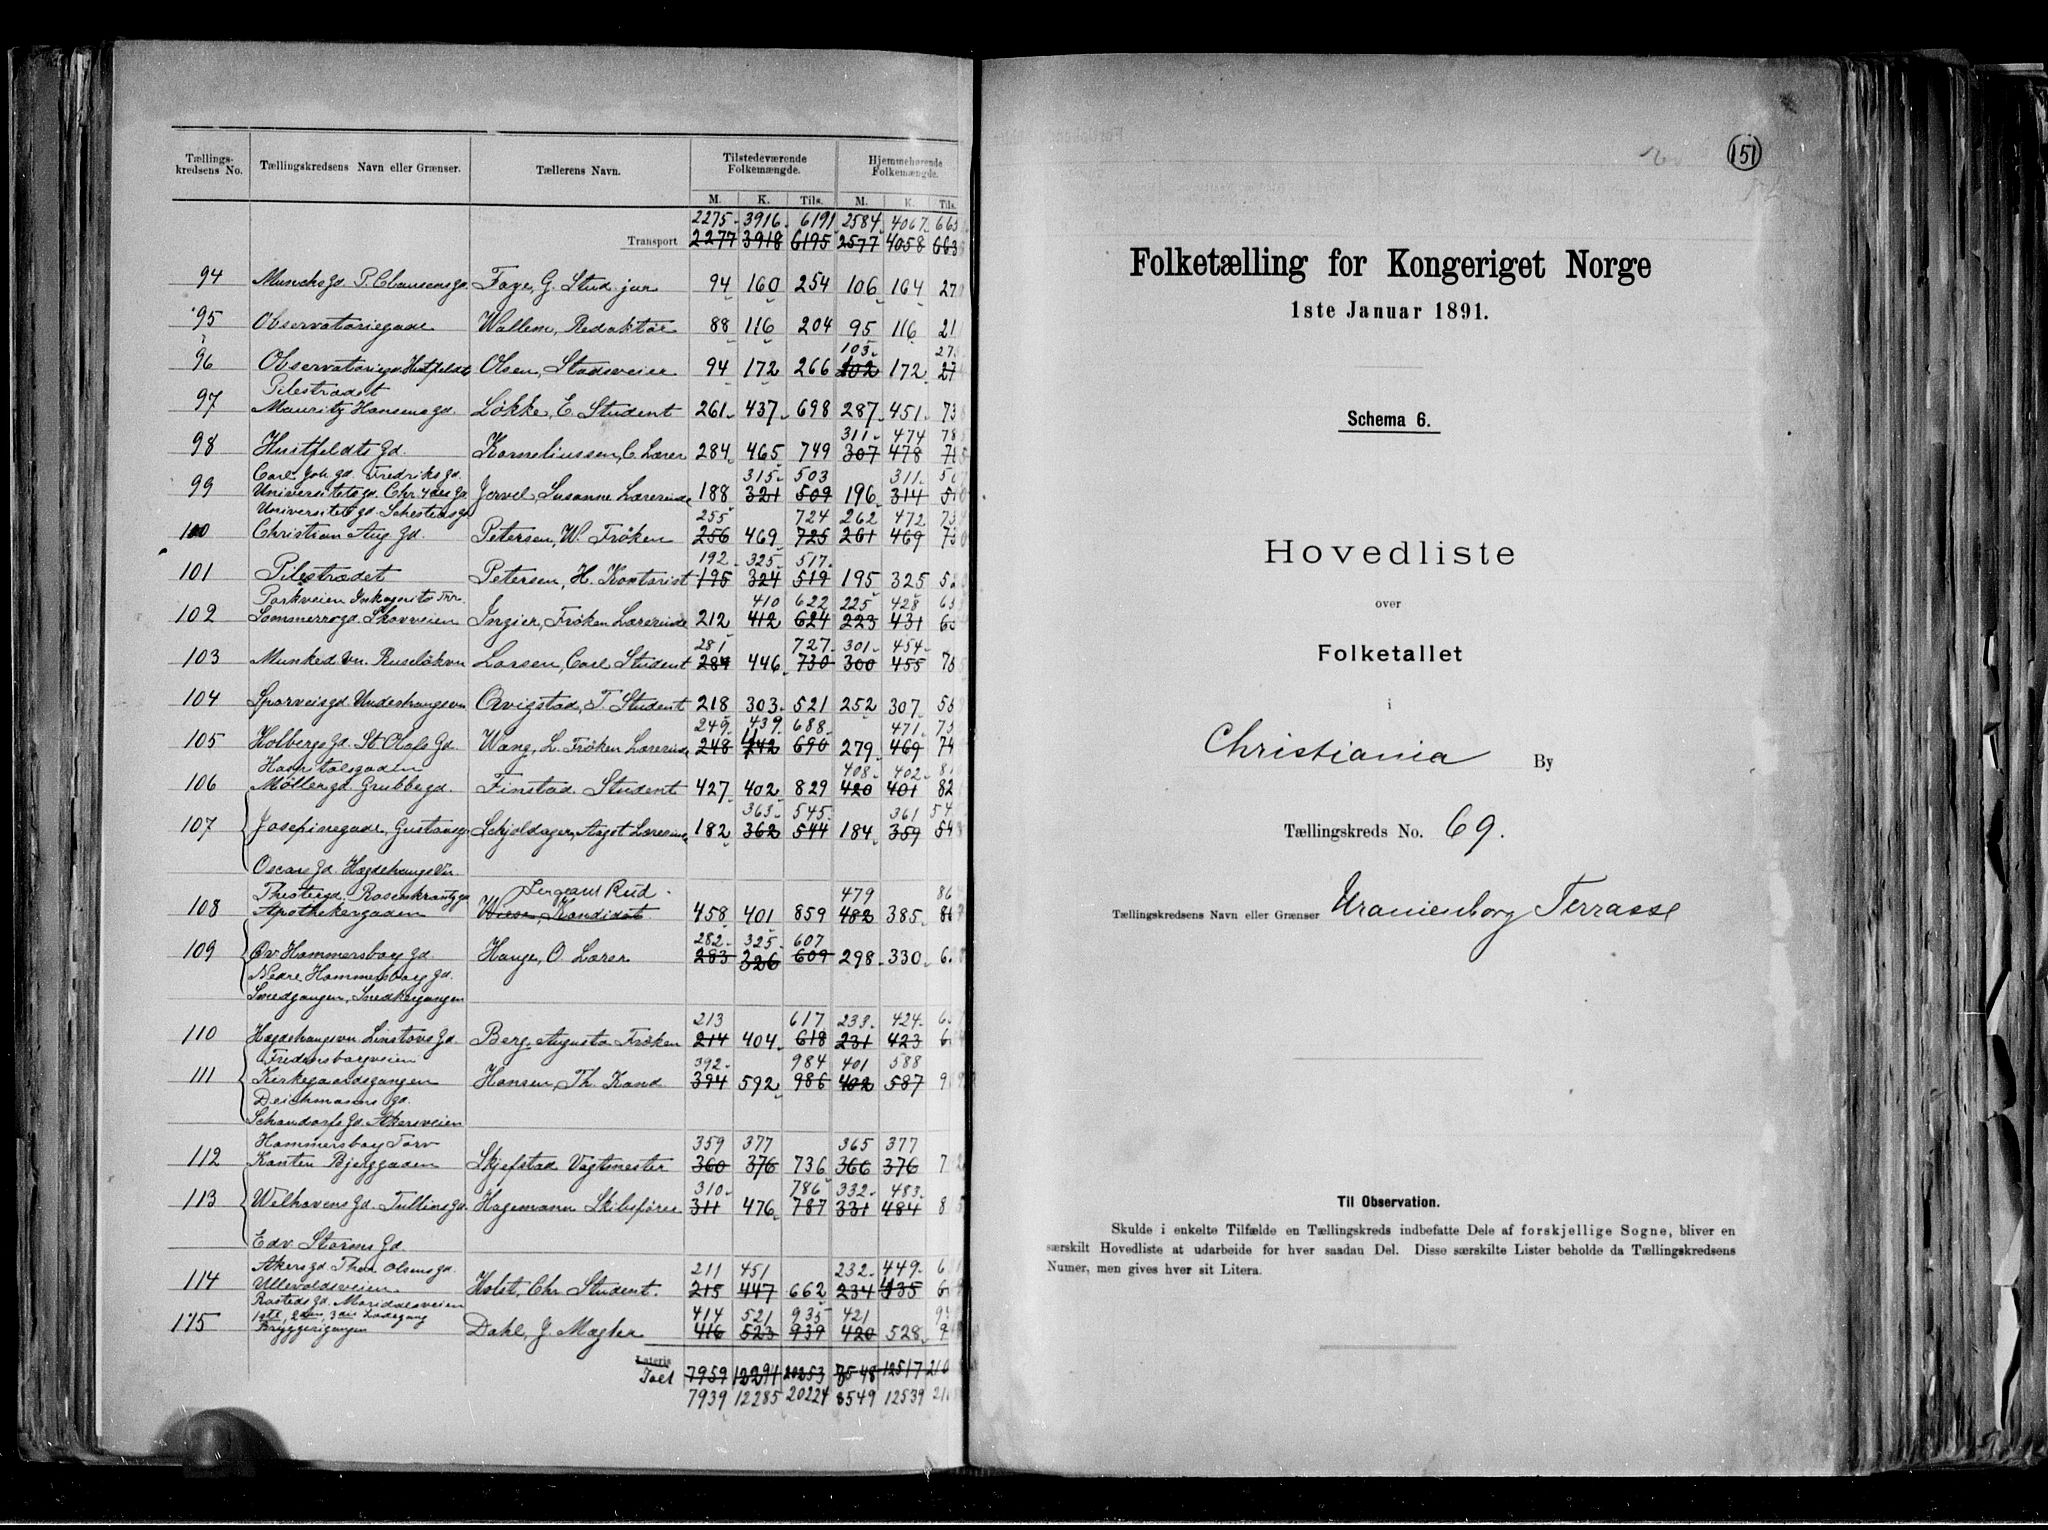 Tællings-kredsens No. Tællingskredsens Navn eller Grænser. Tællerens Navn. Tilstedeværende Folkemængde. Hjemmehørende Folkemængde.
M. K. Tils. M. K. Tils.
2275 3916 6191 2584 4067 663
Transport 2277 3918 6195 2577 4058 663
94 Munchsgd. P. Clausensgd. Faye, G. Stud. jur 94 160 254 106 164 27
95 Observatoriegade Wallem, Redaktør 88 116 204 95 116 21
103 27
96 Observatoriegd. Huitfeldts Olsen, Stadsveier 94 172 266 102 172 27
Pilestrædet
97 Mauritz Hansens gd. Løkke, E. Student 261 437 698 287 451 73
311 474 78
98 Huitfeldts Gd. Korneliussen, C. Lærer 284 465 749 307 478 785
Carl Joh. gd. Fredriks gd. 315 503 311 50
99 Universitetsgd. Chr. 4des Gd. Jervel, Susanne Lærerinde 188 321 509 196 314 510
Universitet gd. Sehestedsgd. 255 724 262 472 73
100 Christian Aug. Gd. Petersen, W. Frøken 256 469 725 261 469 730
192 325 517
101 Pilestrædet Petersen, H. Kontorist 195 324 519 195 325 52
Parkveien Inkognito Terr. 410 622 225 428 65
102 Sommerrogd. Skovveien Ingier, Frøken Lærerinde 212 412 624 223 431 65
281 727 301 454
103 Munked. vn. Ruseløkvn Larsen, Carl Student 284 446 730 300 455 75
104 Sporveisgd. Underhaugsvn Qvigstad, T. Student 218 303 521 252 307 55
249 439 688 471 75
105 Holbergs Gd. St. Olafs Gd. Wang, L. Frøken Lærerinde 248 442 690 279 469 74
Hospitalsgaden 408 402 81
106 Møllergd. Grubbegd. Finstad, Student 427 402 829 420 401 82
363 545 361 54
107 Josefinegade, Gustavsgd. Schjoldager, Aagot Lærerinde 182 362 544 184 359 54
Oscars Gd. Hægdehaugsvn.
Theatergd. Rosenkrantzgd. Sergeant Rud 479 86
108 Apothekergaden Wiese, Kandidat 458 401 859 482 385 867
282 325 607
109 Øv. Hammersborg Gd. Hauge, O. Lærer 283 326 609 298 330 6
Nedre Hammersborg Gd.
Smedgangen, Snedkergangen
213 617 233 424 6
110 Hægdehaugsvn Linstows Gd. Berg, Augusta Frøken 214 404 618 231 423 6
Fredensborgveien 392 984 401 588
111 Kirkegaardsgangen Hansen, Th. Kand 394 592 986 402 587 9
Deichmanns Gd.
Schandorfs Gd. Akersveien
Hammersborg Torv 359 377 365 377
112 Kanten Bjerggaden Skjefstad Vagtmester 360 376 736 366 376 7
310 786 332 483
113 Welhavens Gd. Tullins Gd. Hagemann Skibsfører 311 476 787 331 484 8
Edv. Storms Gd.
Akersgd. Thor Olsens gd. 211 451 232 449 6
114 Ullevoldsveien Holst, Chr. Student. 215 447 662 234 435 6
Rosteds Gd. Maridalsveien 414 521 935 421 9
115 1ste, 2den, 3die Ladegang
Bryggerigangen Dahl, J. Mægler 416 523 939 420 528 9
Lateris
Ialt 7959 12294 20253 8548 12517 210
7939 12285 20224 8549 12539 210
151
Folketælling for Kongeriget Norge
1ste Januar 1891.
Schema 6.
Hovedliste
over
Folketallet
i
Christiania By
Tællingskreds No. 69.
Tællingskredsens Navn eller Grænser Uranienborg Terrasse
Til Observation.
Skulde i enkelte Tilfælde en Tællingskreds indbefatte Dele af forskjellige Sogne, bliver en
særskilt Hovedliste at udarbeide for hver saadan Del. Disse særskilte Lister beholde da Tællingskredsens
Numer, men gives hver sit Litera.